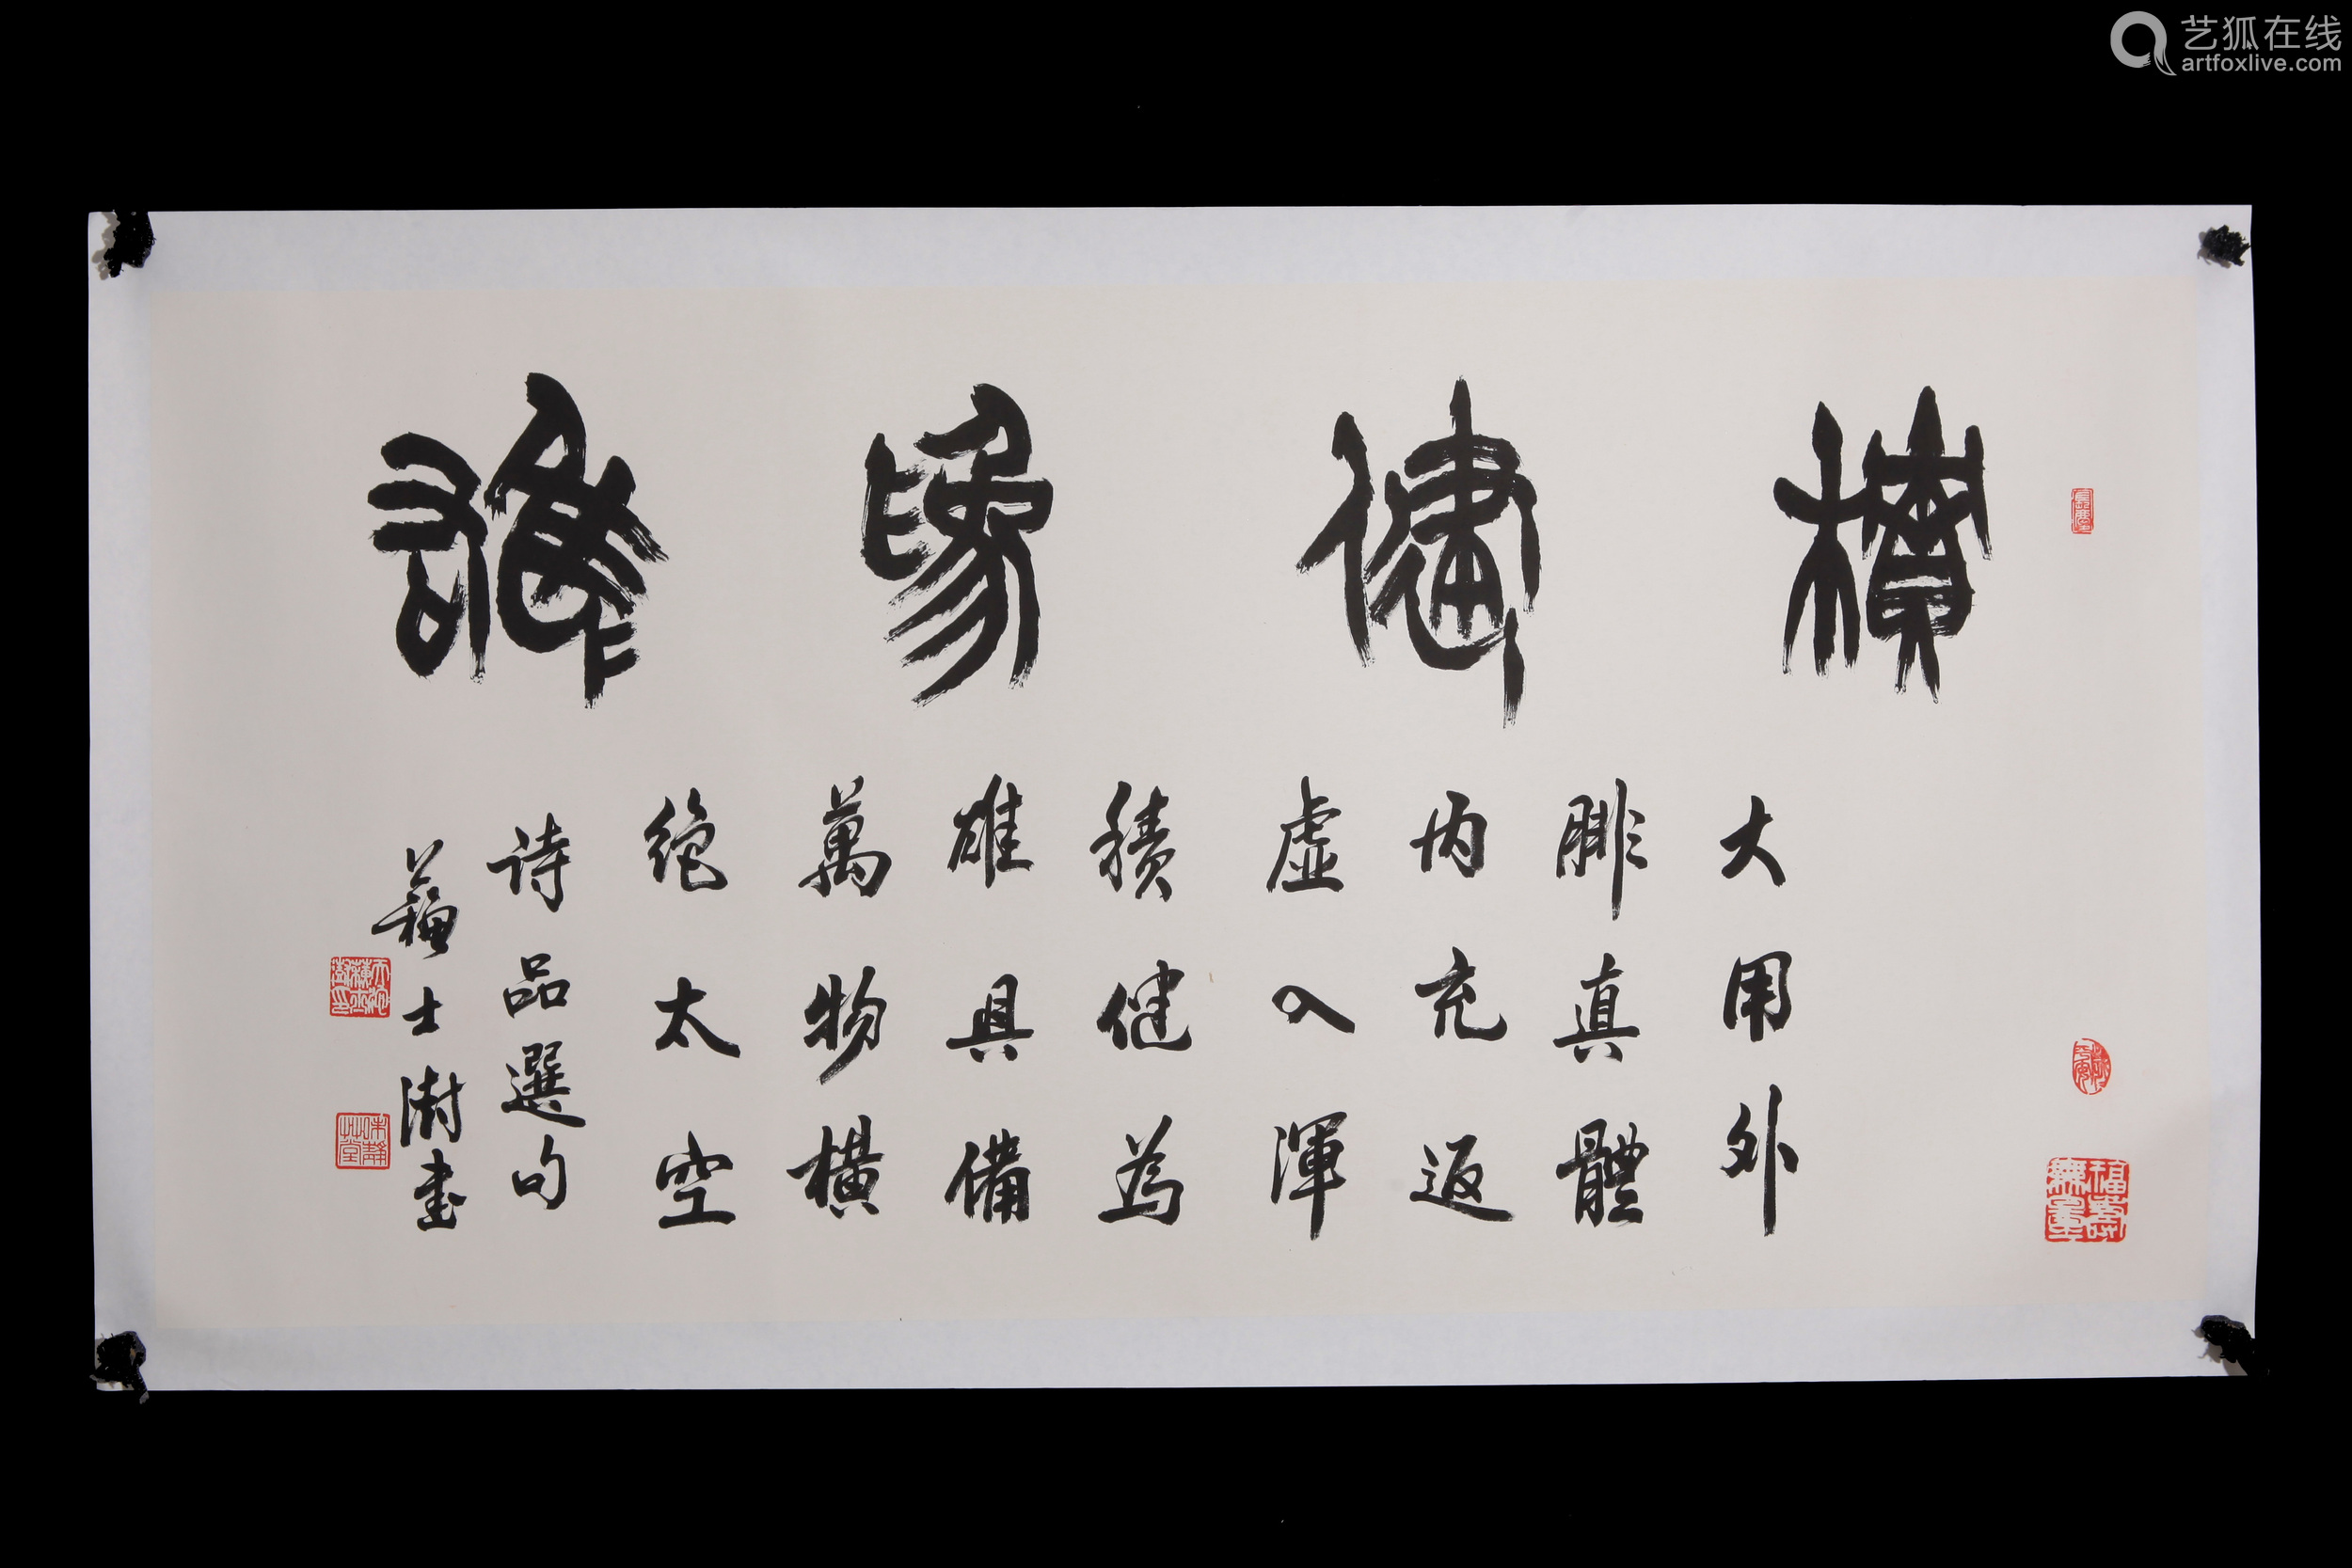 艺狐在线
artfoxlive.com
積健為雄
大用外
腓真體
内充返
虛入渾
積健為
雄具備
萬物橫
絕太空
诗品選句
蘇士澍書
福壽無量